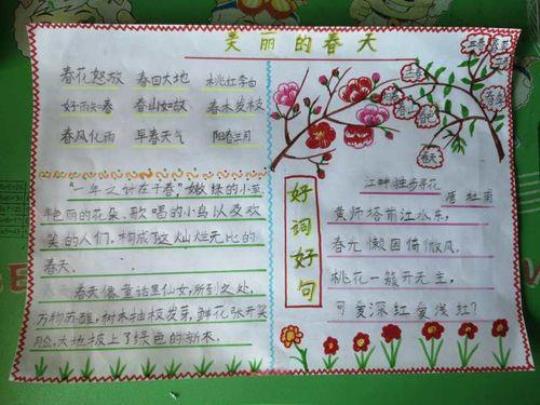 美丽的春天
春花怒放 春回大地 桃红李白
好雨知春 春山如故 春来发枝
春风化雨 早春天气 阳春三月
"一年之计在于春"嫩绿的小草
艳丽的花朵、歌唱的小鸟以及欢
笑的人们，构成了这灿烂无比的
春天。
春天像童话里仙女，所到之处，
万物苏醒，树木抽枝发芽，鲜花张开笑
脸，大地披上了绿色的新衣。
好词好句
江畔独步寻花
唐 杜甫
黄师塔前江水东，
春光懒困倚微风。
桃花一簇开无主，
可爱深红爱浅红？
春天